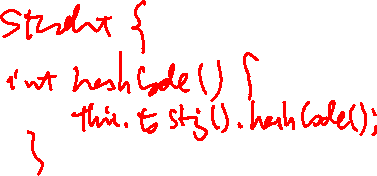 Student {
int hashCode() {
this.toString().hashCode();
}